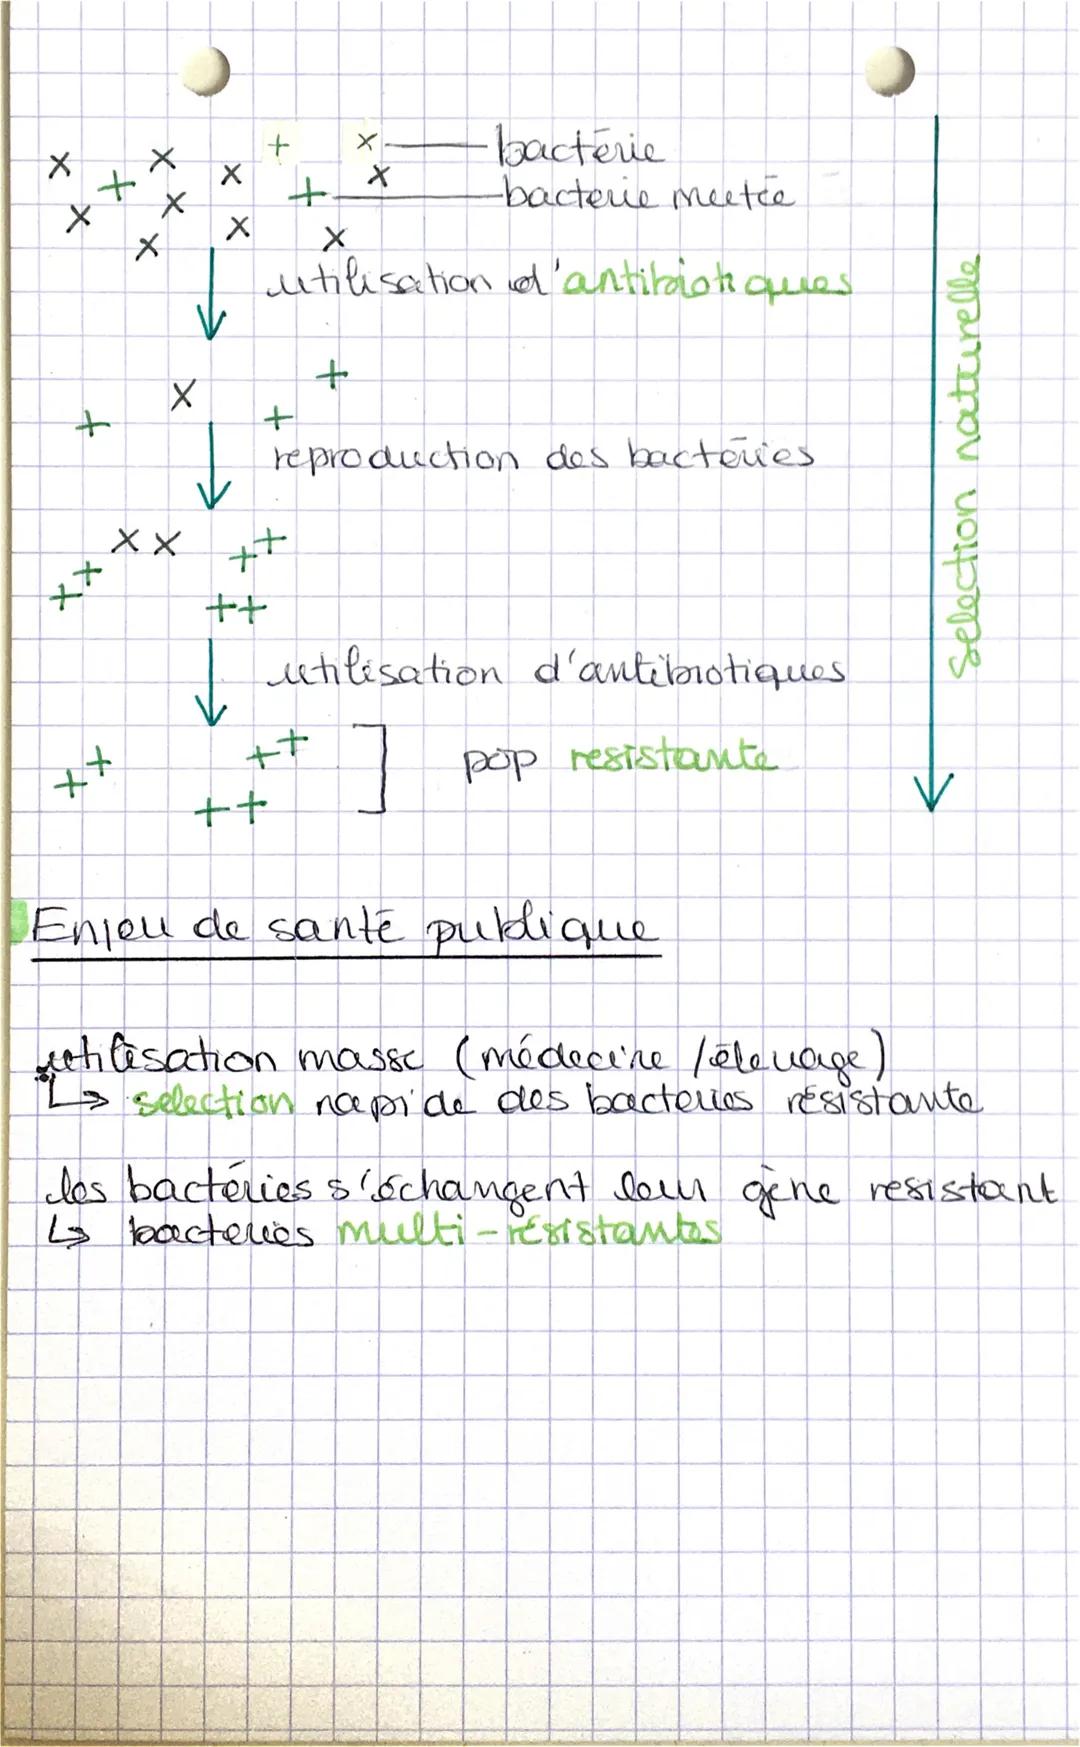 bactérie
bacterie mutée
utilisation d'antibiotiques
reproduction des bactéries
utilisation d'antibiotiques
pop resistante
selection naturelle
Enjeu de santé publique
utilisation masse (médecine / élevage)
↳ selection rapide des bacteries résistante
les bactéries s'échangent leur gène resistant
↳ bacteries multi-résistantes